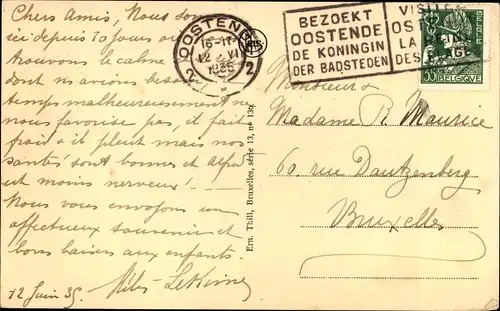 Chers Amis, Nous som
ici depuis 10 jours ou
trouvons le calme
dont nous avions besoin
temps malheureusement
nous favorise pas, il fait
froid & il pleut mais nos
santés sont bonnes et
est moins nerveux!
Nous vous envoyons un
affectueux souvenir et
bons baisers aux enfants.
12 Juin 35.
OOSTENDE
2 2
1935
BEZOEKT
OOSTENDE
DE KONINGIN
DER BADSTEDEN
VISITEZ
LA
DES
PLAGES
BELGIQUE
Ern. Thill, Bruxelles, série 13, nº 139
Monsieur &
Madame R. Maurice
60. rue Dautzenberg
Bruxelles